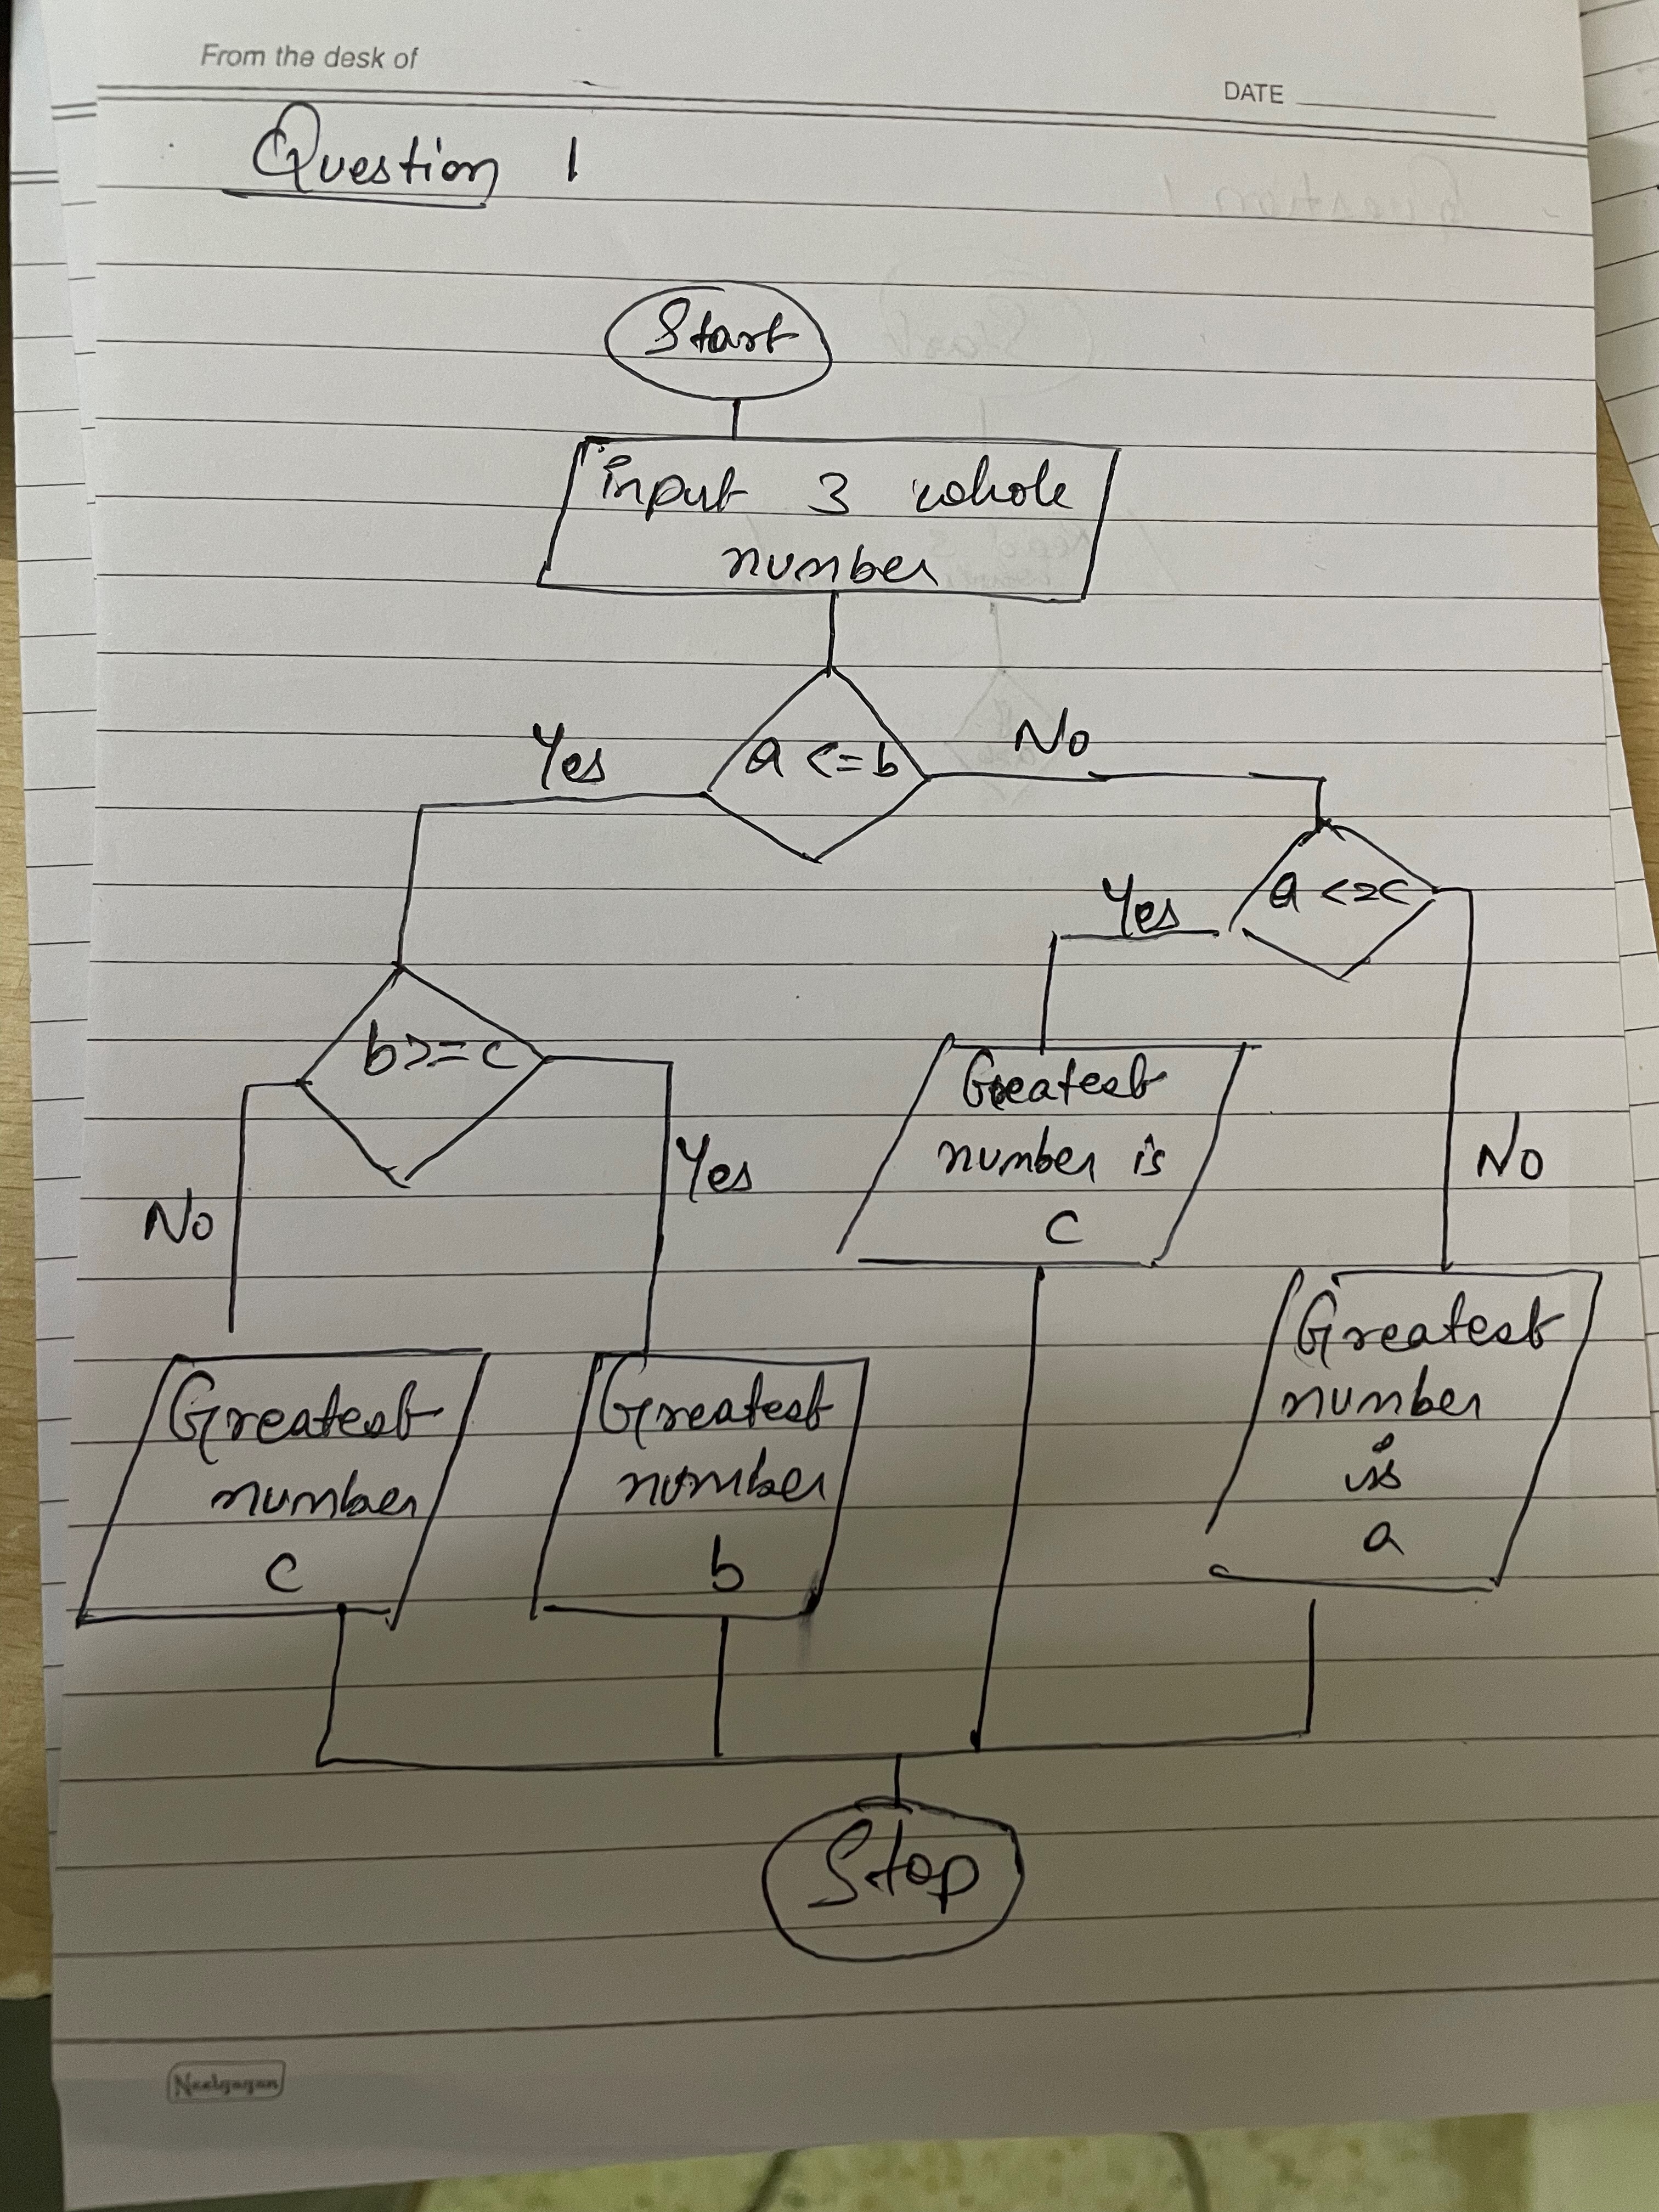 From the desk of
DATE
Question 1
Start
input 3 whole
number
a <= b
Yes
No
a <= c
Yes
b >= c
Greatest
number is
c
No
Yes
No
Greatest
number
is
a
Greatest
number
c
Greatest
number
b
Stop
Neelgagan